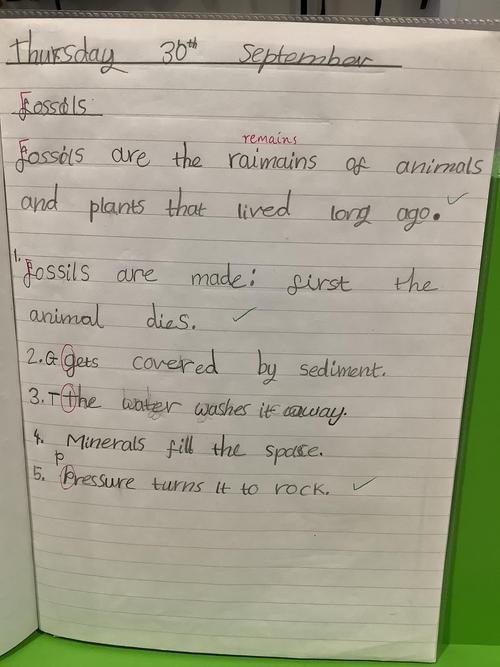 Thursday 30th September
Fossils
remains
Fossils are the raimains of animals
and plants that lived long ago.
1. Fossils are made: first the
animal dies.
2. G gets covered by sediment.
3. T the water washes it away.
4. Minerals fill the space.
p
5. Pressure turns it to rock.